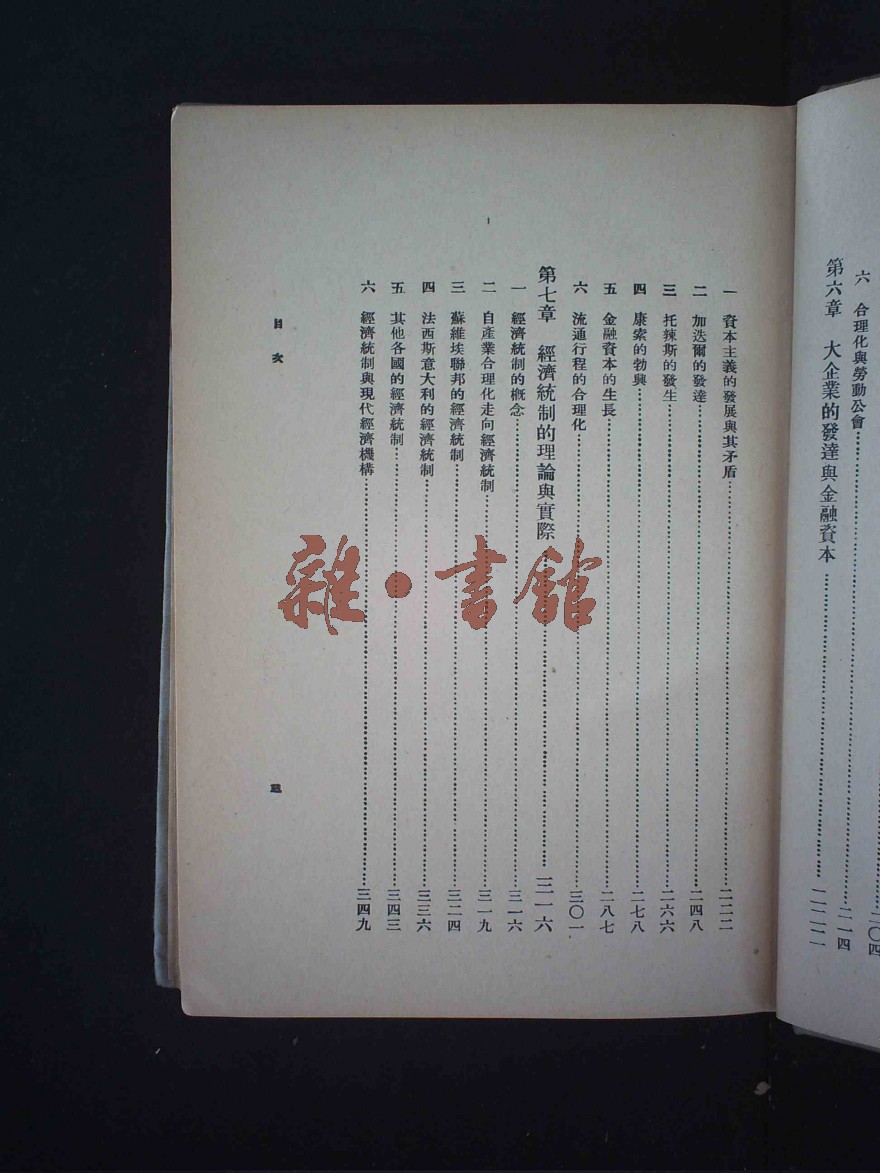 二〇四
六 合理化與勞動公會……二一四
第六章 大企業的發達與金融資本……二二二
一 資本主義的發展與其矛盾……二二二
二 加迭爾的發達……二四八
三 托辣斯的發生……二六六
四 康索的勃興……二七八
五 金融資本的生長……二八七
六 流通行程的合理化……三〇一
第七章 經濟統制的理論與實際……三一六
一 經濟統制的概念……三一六
二 自產業合理化走向經濟統制……三一九
三 蘇維埃聯邦的經濟統制……三二四
四 法西斯意大利的經濟統制……三三六
五 其他各國的經濟統制……三四三
六 經濟統制與現代經濟機構……三四九
目次
雜·書館